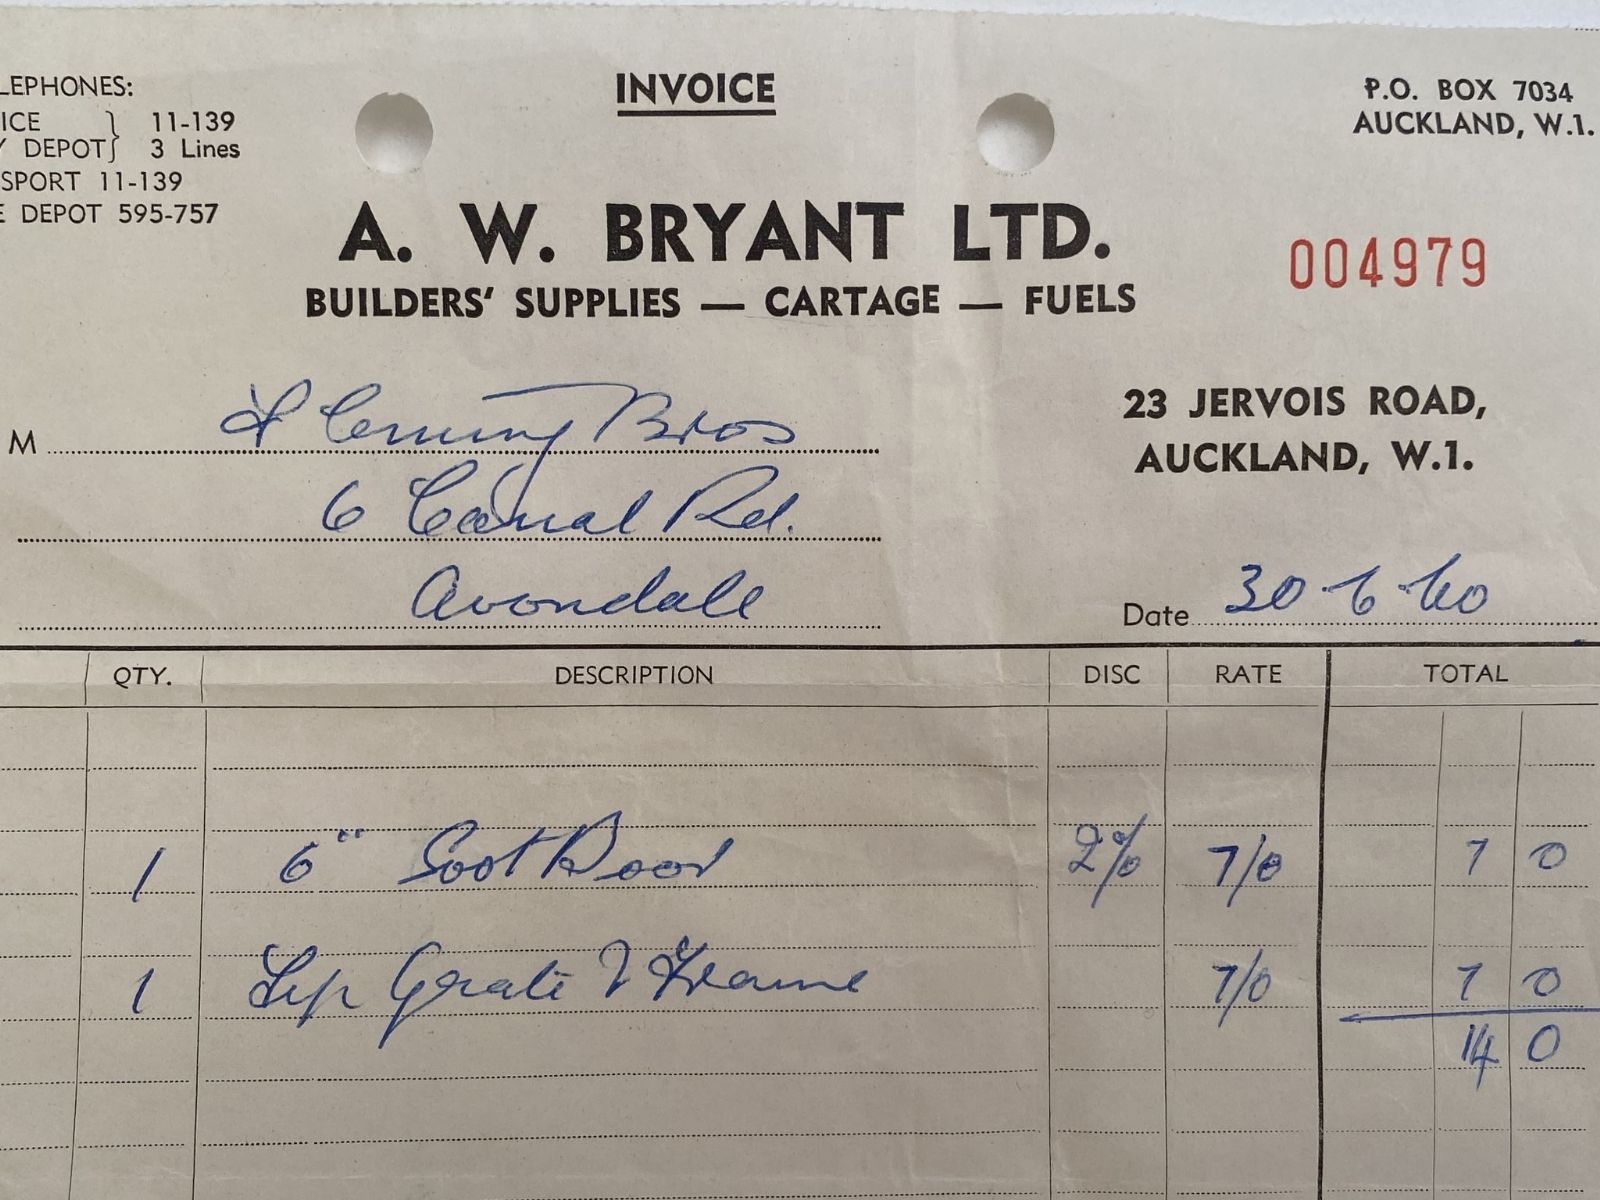 INVOICE
LEPHONES:
ICE } 11-139
Y DEPOT } 3 Lines
SPORT 11-139
E DEPOT 595-757
P.O. BOX 7034
AUCKLAND, W.1.
A. W. BRYANT LTD.
BUILDERS' SUPPLIES — CARTAGE — FUELS
004979
23 JERVOIS ROAD,
AUCKLAND, W.1.
M Fleming Bros
6 Canal Rd.
Avondale
Date 30-6-60
QTY. DESCRIPTION DISC RATE TOTAL
1 6" Soot Door 2% 7/0 7 0
1 Grate & Frame 7/0 7 0
14 0